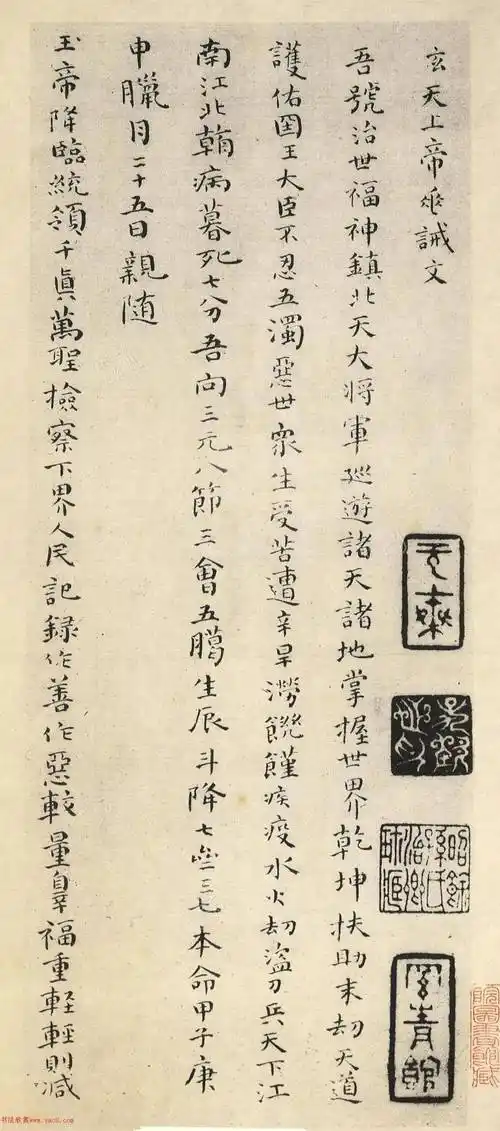 玄天上帝垂誡文
吾號治世福神鎮北天大將軍廵遊諸天諸地掌握世界乾坤扶助末劫天道
護佑囯王大臣不忍五濁惡世衆生受苦遭辛旱澇饑饉疾疫水火刼盜刀兵天下江
南江北朝病暮死七分吾向三元八節三會五臈生辰斗降七三七本命甲子庚
申臘月二十五日親随
玉帝降臨統領千眞萬聖檢察下界人民記録作善作惡較量辠福重軽輕則减
书法欣赏www.yac8.com